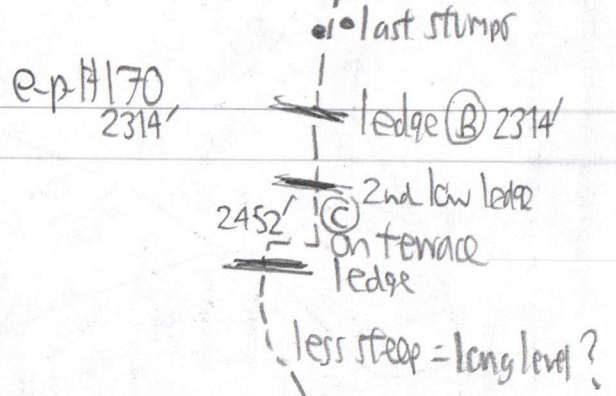 last stumps
2314'
ledge B 2314'
2nd low ledge
2452' C
on terrace
ledge
less steep = long level?